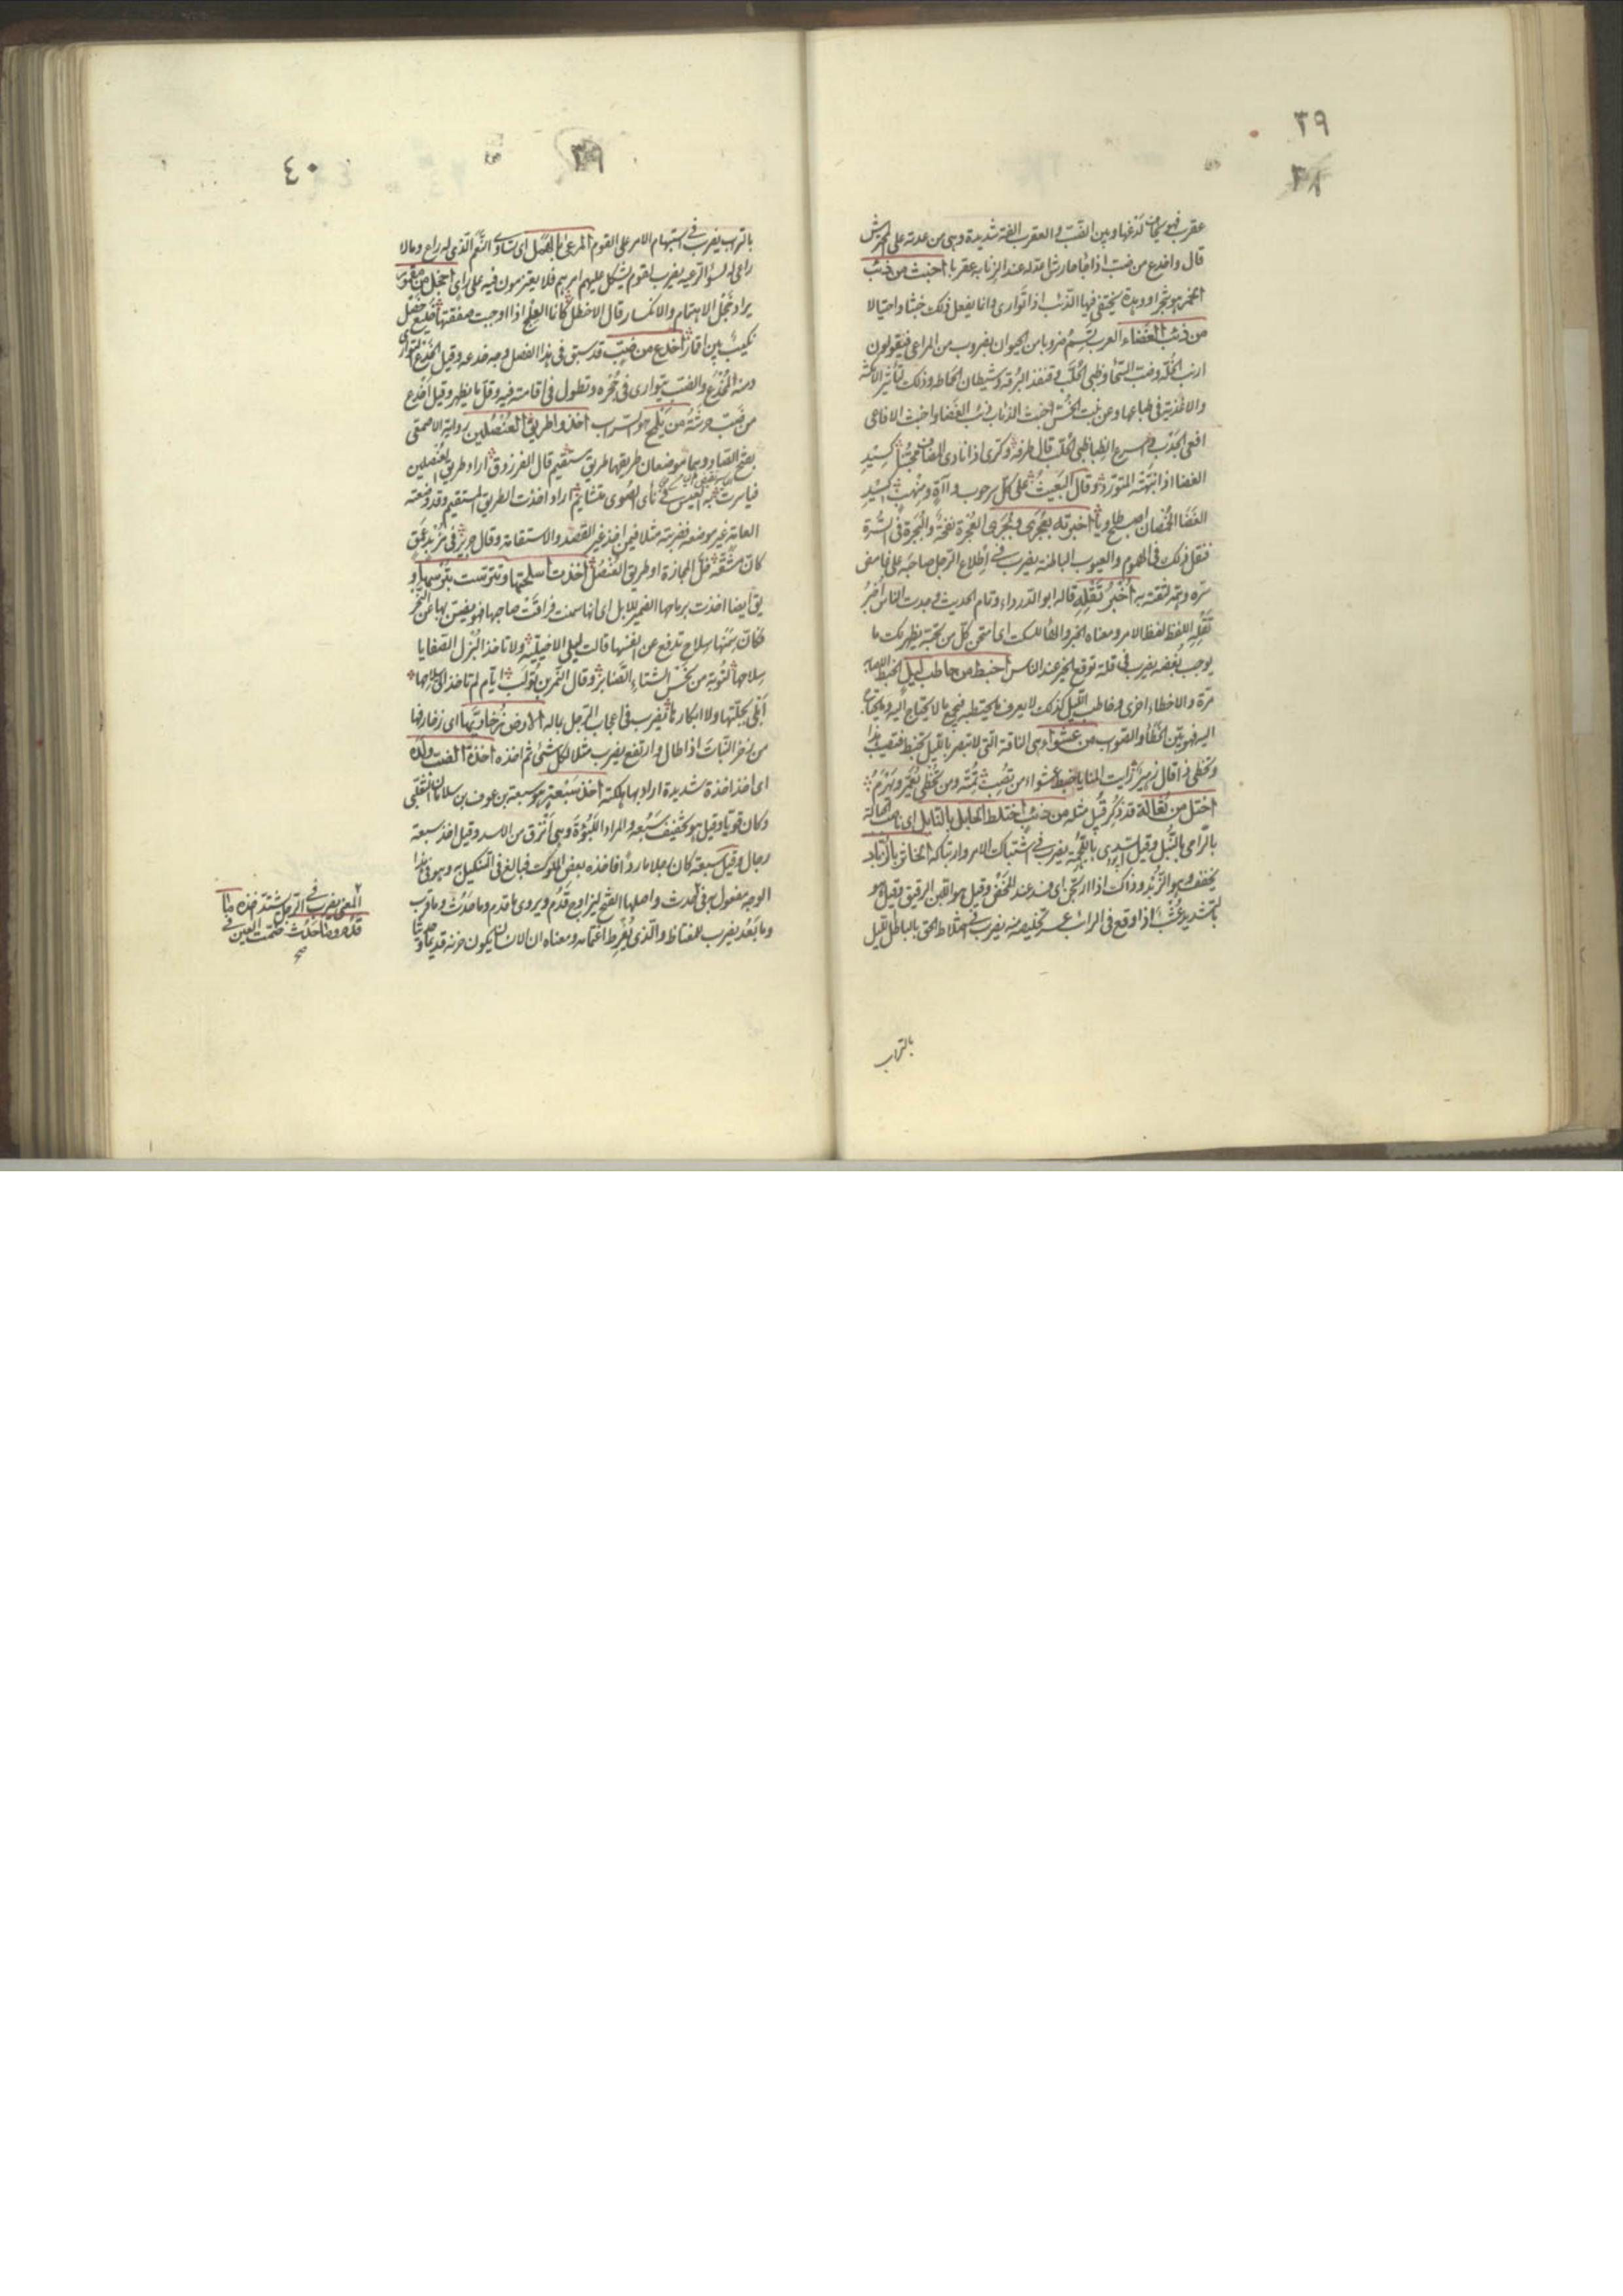 ٣٩
٣٨
عقرب فهو يخاف لدغها وبين الضب والعقرب الفة شديدة وهى من عدته على المحترش
قال واخدع من ضب اذا جاء حارش اعدله عند الذنابة عقربا اخبث من ذئب
الخمر هو شجر او وهدة يختفى فيها الذئب اذا توارى وانما يفعل ذلك خبثا واحتيالا
من ذئب الغضاء العرب تسم ضروبا من الحيوان بضروب من المراعى فيقولون
ارنب الخلة وضب السحا وظبى الحلب وقنفذ البرقة وشيطان الحماطة وذلك لتأثير الامكنة
والاغذية فى طباعها وعن بنت الخس اخبث الذئاب ذئب الغضا واخبث الافاعى
افعى الجدب واسرع الظبا ظبى الحلب قال طرفة وكرى اذا نادى المضاف محنبا كسيد
الغضا اذا نبهته المتورد وقال البعيث على كل سرحوب وآة ومنهب كسيد
الغضا الخمصان اصبح طاويا اخبرته بعجرى وبجرى العجرة نفخة والبجرة فى السرة
فنقل ذلك فى الهموم والعيوب الباطنة يضرب فى اطلاع الرجل صاحبه على غامض
سره وهمه لثقته به اخبر تقله قاله ابو الدرداء وتمام الحديث وجدت الناس اخبر
تقله اللفظ لفظ الامر ومعناه الخبر والهاء للسكت اى امتحن كل من تحبه يظهر لك ما
يوجب بغضه يضرب فى قلة توقع الخير عند الناس اخبط من حاطب ليل الخبط الاصابة
مرة والاخطاء اخرى وحاطب الليل كذلك لا يعرف ما يحتطبه فيجمع ما لا يحتاج اليه وما يحتاج
اليه فهو بين الخطأ والصواب من عشواء وهى الناقة التى لا تبصر بالليل تخبط فتصيب هذا
وتخطى ذا قال زهير رايت المنايا خبط عشواء من تصب تمته ومن تخطى يعمر ويهرم
اختل من ثعالة قد ذكر قبل مثله من ذئب اختلط الحابل بالنابل اى ناصب الحبالة
بالرامى بالنبل وقيل السدى باللحمة يضرب فى اشتباك الامر وارتباكه الخاثر بالزباد
يخفف وهو الزبد وذاك اذا ارتجن اى فسد عند المخض وقيل هو اللبن الرقيق وقيل هو
بالتشديد عشب اذا وقع فى الرائب عسر تخليصه منه يضرب فى اختلاط الحق بالباطل الليل
بالتراب
٤٠
٣٩
بالتراب يضرب فى استبهام الامر على القوم المرعى بالهمل اى تساوى النعم الذى له راع وما لا
راعى له لسوء الرعيه يضرب لقوم يشكل عليهم امرهم فلا يعتزمون فيه على راى اخجل من مقمور
يراد خجل الاهتمام والانكسار قال الاخطل كأنما العلج اذا اوجبت صفقتها خليع خصل
نكيب بين اقمار اخدع من ضب قد سبق فى هذا الفصل وجه خدعه وقيل الخدع التوارى
ومنه المخدع والضب يتوارى فى جحره وتطول فى اقامته فيه وقل ما يظهر وقيل اخدع
من ضب حرشته من يلمع والسراب اخذوا طريق العنصلين رواية الاصمعى
بفتح الصاد وهما موضعان طريقهما طريق مستقيم قال الفرزدق اراد طريق العنصلين
فياسرت به العيس فى نائى الصوى متشائم اراد اخذت الطريق المستقيم وقد وضعته
العامة غير موضعه فضربته مثلا فيمن اخذ غير القصد والاستقامة وقال جرير
كان مشقة اخذت اسلحتها وتترست بترسها و
يق ايضا اخذت برماحها الضمير للابل اى انها سمنت فراقت صاحبها فهو يضن بها عن النحر
فكان سمنها سلاح تدفع عن انفسها قالت ليلى الاخيلية ولا تاخذ البزل الصفايا
سلاحها لتوبة من نحس الشتاء الصنابر وقال النمر بن تولب ايام لم تاخذ الى سلاحها
ابلى بجلتها ولا ابكارها يضرب فى اعجاب الرجل بماله الارض زخاريها اى زخارفها
من زخر النبات اذا طال وارتفع يضرب مثلا لكل شئ تم اخذه اخذة الضب ولده
اى اخذ اخذة شديدة اراد بها هلكته اخذ سبعة هو سبعة بن عوف بن سلامان الثعلبى
وكان قويا وقيل هو تخفيف سبعة والمراد اللبؤة وهى انزق من الاسد وقيل اخذ سبعة
رجال وقيل سبعة كان رجلا ماردا فاخذه بعض الملوك فبالغ فى التنكيل به وهو فى هذا
الوجه مفعول به فى حدث واصلها الفتح ليزاوج قدم ويروى ما قدم وما حدث وما قرب
وما بعد يضرب للمغتاظ والذى يفرط اغتمامه ومعناه ان الانسان يكون حزنه قديما وحديثا
المعنى يضرب فى الرجل يشتد اخذه ما
قدم وما حدث ضمت العين فى
صح